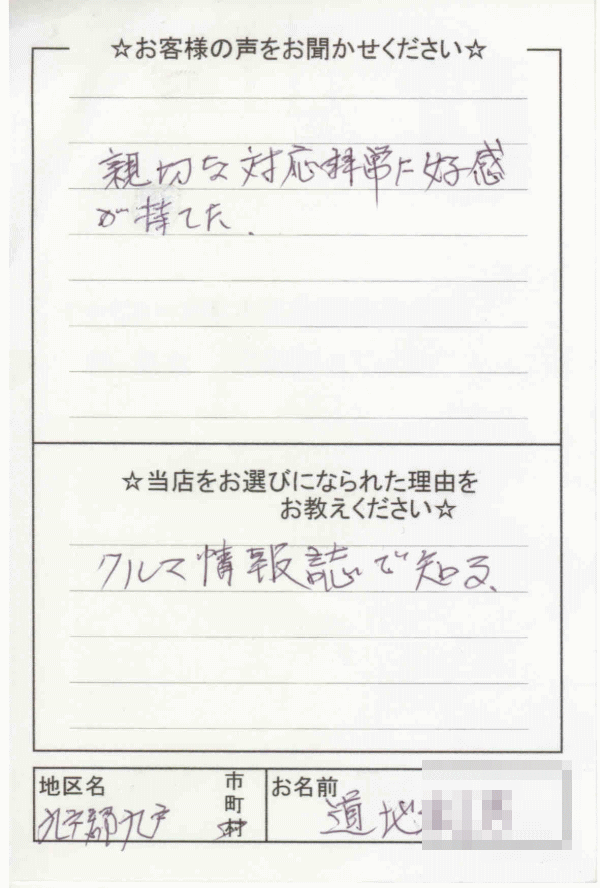 ☆お客様の声をお聞かせください☆
親切な対応非常に好感
が持てた.
☆当店をお選びになられた理由を
お教えください☆
クルマ情報誌で知る.
地区名
九戸郡九戸
市
町
村
お名前
道地